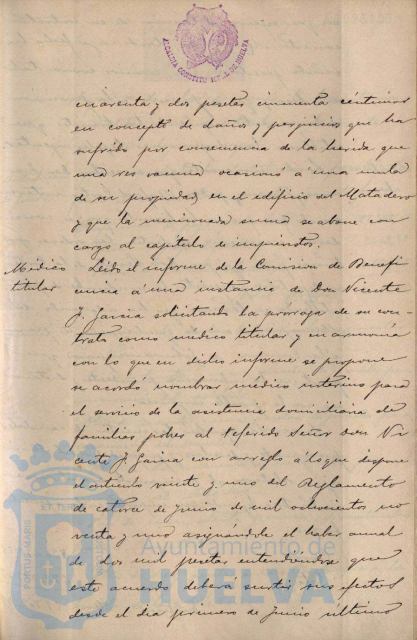 ALCALDIA CONSTITUCIONAL DE HUELVA
cuarenta y dos pesetas cincuenta céntimos
en concepto de daños y perjuicios que ha
sufrido por consecuencia de la herida que
una res vacuna ocasionó á una mula
de su propiedad, en el edificio del Matadero
y que la mencionada suma se abone con
cargo al capítulo de imprevistos.
Médico
titular
Leido el informe de la Comision de Benefi
cencia á una instancia de Don Vicente
J. Garcia solicitando la prorroga de su con-
trato como médico titular y en armonía
con lo que en dicho informe se propone
se acordó nombrar médico interino para
el servicio de la asistencia domiciliaria de
familias pobres al referido Señor don Vi
cente J. Garcia con arreglo á lo que dispone
el artículo veinte y uno del Reglamento
de catorce de Junio de mil ochocientos no
venta y uno asignándole el haber anual
de dos mil pesetas entendiendose que
este acuerdo deberá surtir sus efectos
desde el dia primero de Junio último
PORTUS MARIS
ET TERRAE
Ayuntamiento de
HUELVA